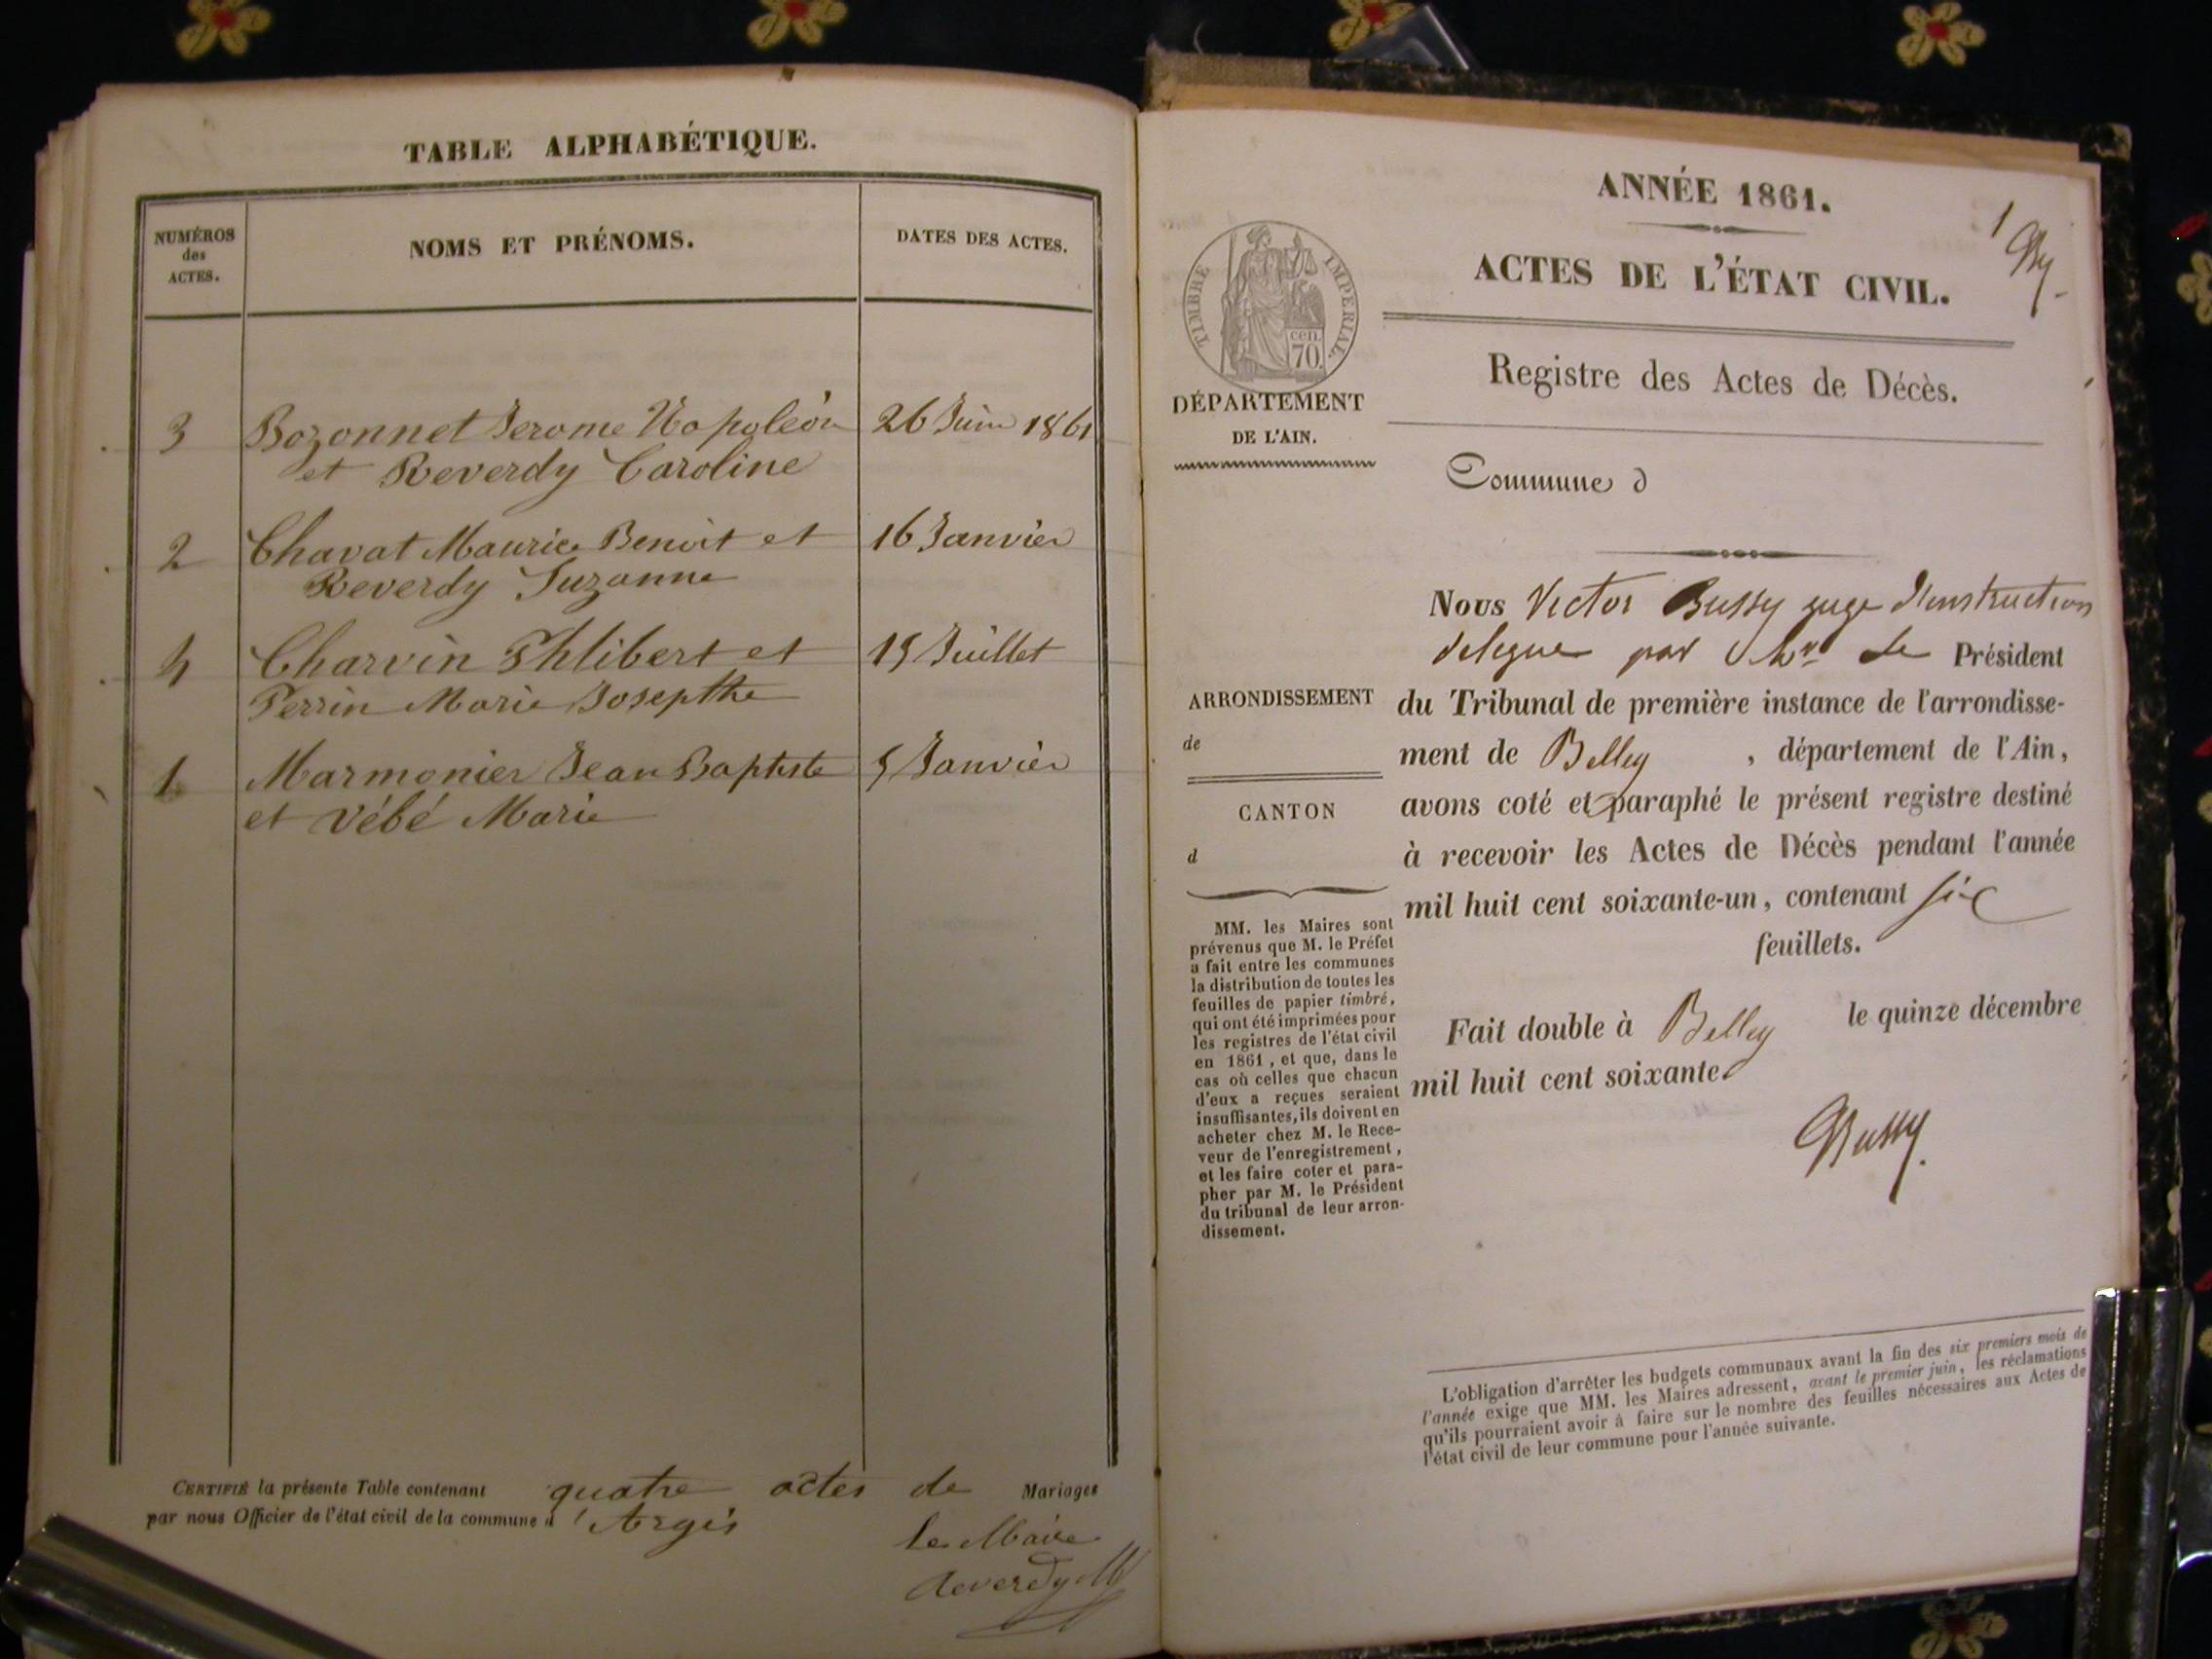 TABLE ALPHABÉTIQUE.
NUMÉROS
des
ACTES.
NOMS ET PRÉNOMS.
DATES DES ACTES.
3 Bozonnet Jerome Napoléon 26 Juin 1861
et Reverdy Caroline
2 Chavat Maurice Benoit et 16 Janvier
Reverdy Suzanne
4 Charvin Phlibert et 15 Juillet
Perrin Marie Josepthe
1 Marmonier Jean Baptiste 5 Janvier
et Vébé Marie
CERTIFIÉ la présente Table contenant quatre actes de Mariages
par nous Officier de l'état civil de la commune d'Argis
Le Maire
Reverdy
1
ANNÉE 1861.
ACTES DE L'ÉTAT CIVIL.
TIMBRE IMPERIAL.
cen.
70.
DÉPARTEMENT
DE L'AIN.
Registre des Actes de Décès.
Commune d
ARRONDISSEMENT
de
CANTON
d
MM. les Maires sont
prévenus que M. le Préfet
a fait entre les communes
la distribution de toutes les
feuilles de papier timbré,
qui ont été imprimées pour
les registres de l'état civil
en 1861, et que, dans le
cas où celles que chacun
d'eux a reçues seraient
insuffisantes, ils doivent en
acheter chez M. le Rece-
veur de l'enregistrement,
et les faire coter et para-
pher par M. le Président
du tribunal de leur arron-
dissement.
Nous Victor Bussy juge d'instruction
delegue par Mr le Président
du Tribunal de première instance de l'arrondisse-
ment de Belley, département de l'Ain,
avons coté et paraphé le présent registre destiné
à recevoir les Actes de Décès pendant l'année
mil huit cent soixante-un, contenant six
feuillets.
Fait double à Belley le quinze décembre
mil huit cent soixante.
Bussy
L'obligation d'arrêter les budgets communaux avant la fin des six premiers mois de
l'année exige que MM. les Maires adressent, avant le premier juin, les réclamations
qu'ils pourraient avoir à faire sur le nombre des feuilles nécessaires aux Actes de
l'état civil de leur commune pour l'année suivante.